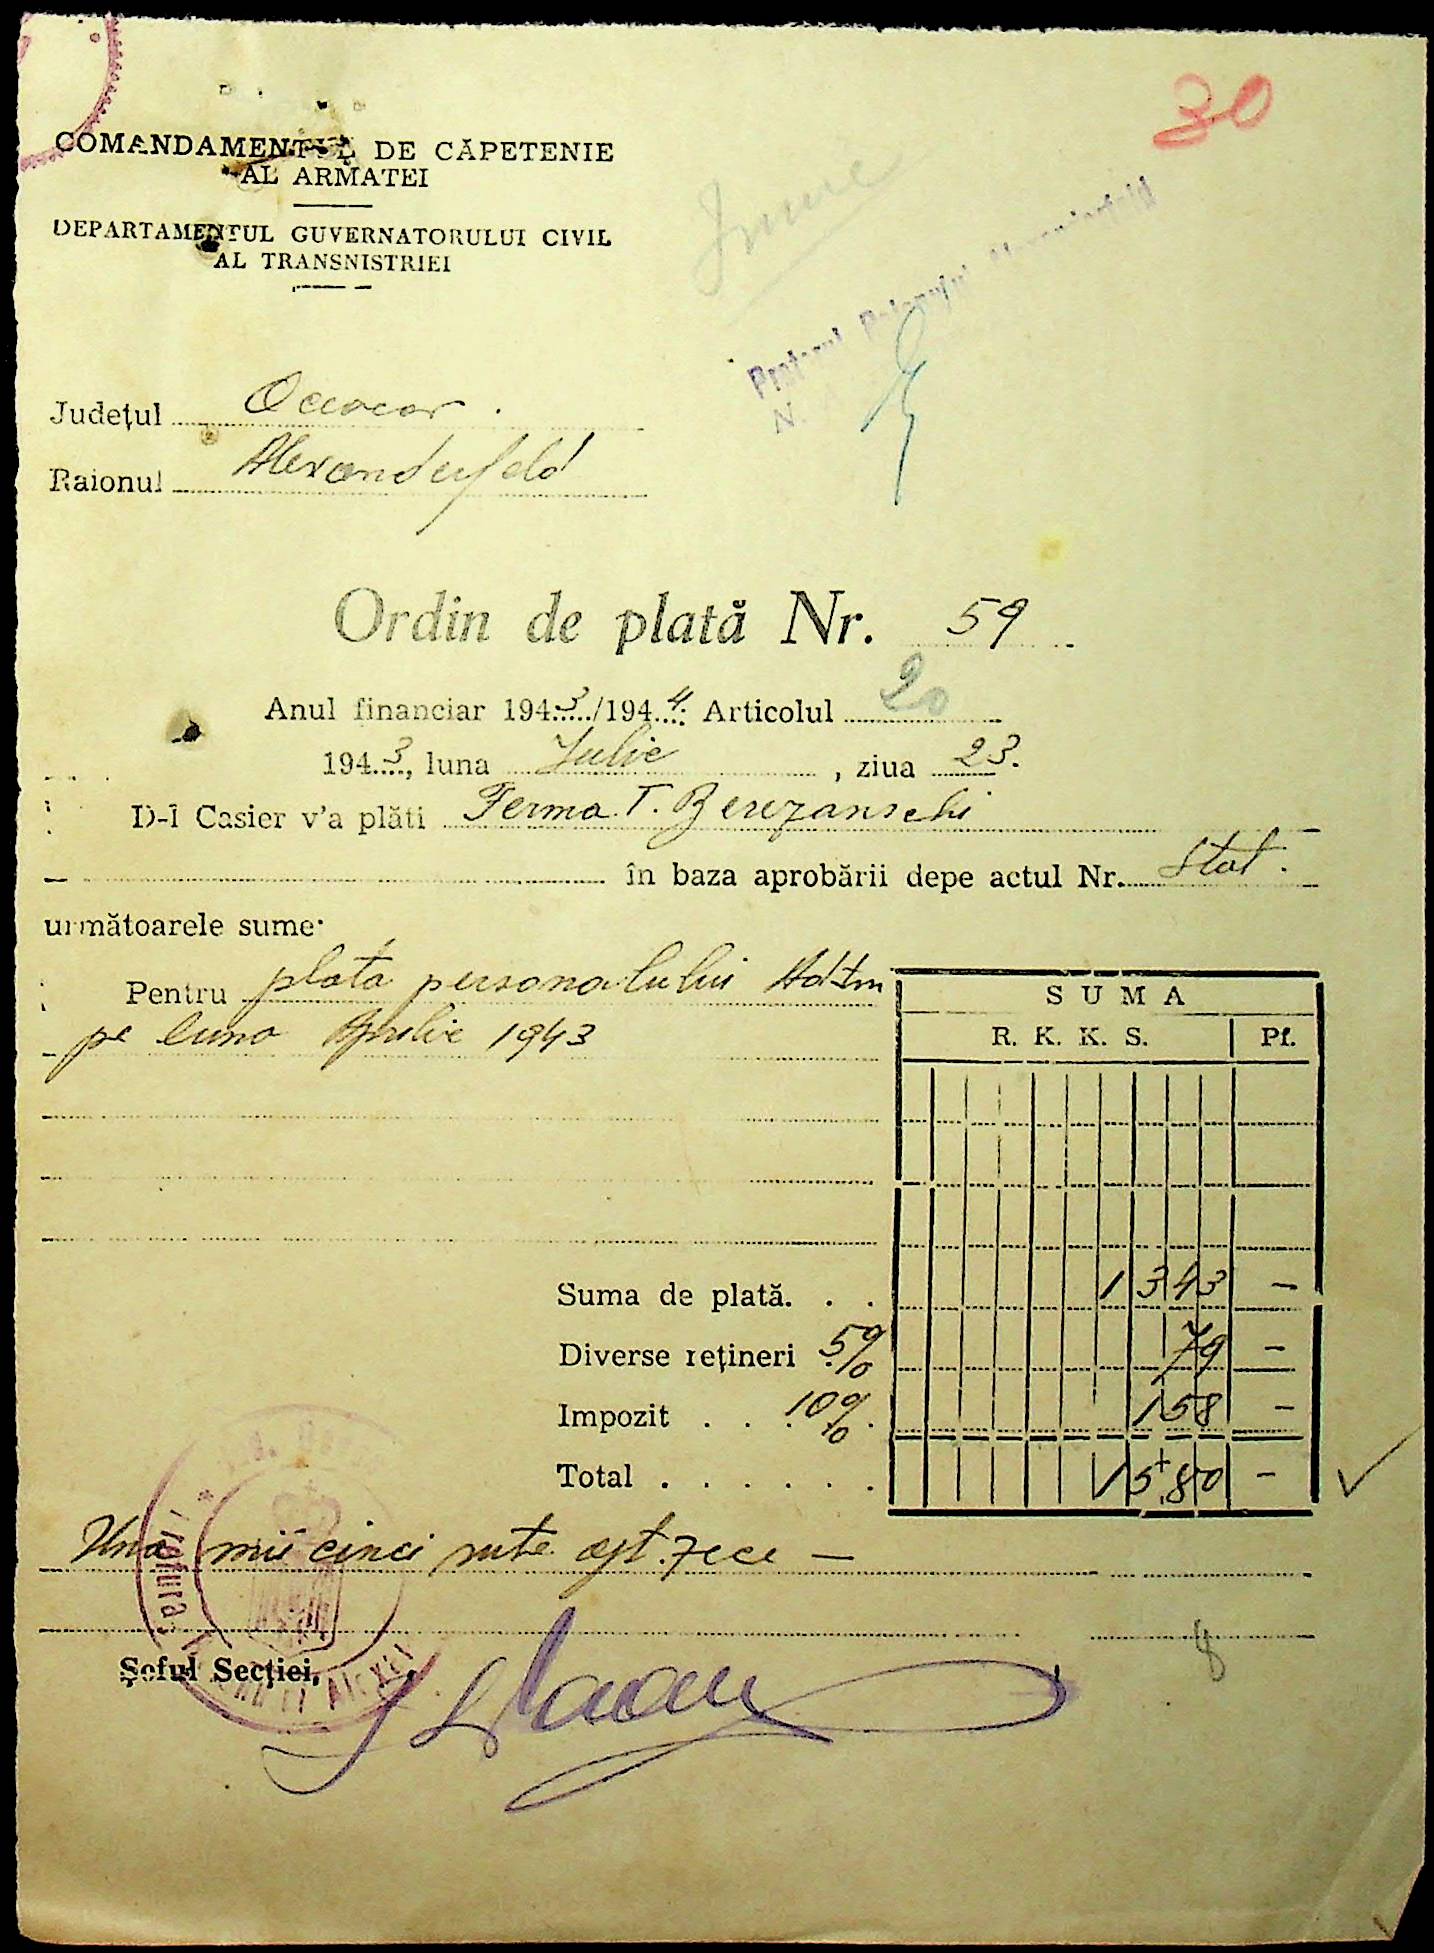 30
COMANDAMENTUL DE CĂPETENIE
AL ARMATEI
DEPARTAMENTUL GUVERNATORULUI CIVIL
AL TRANSNISTRIEI
Județul Oceacov.
Raionul Alexanderfeld
Ordin de plată Nr. 59
Anul financiar 1943/1944 Articolul 20
1943, luna Iulie, ziua 23.
D-l Casier v'a plăti Ferma T. Berezanschi
în baza aprobării depe actul Nr. Stat.
următoarele sume:
Pentru plata personalului Adtm
pe luna Aprilie 1943
SUMA
R. K. K. S. Pf.
Suma de plată. . . 1343 —
Diverse rețineri 5% 79 —
Impozit . . . 10% . 158 —
Total . . . . . . 1580 —
Una mii cinci sute opt.zece —
Șeful Secției,